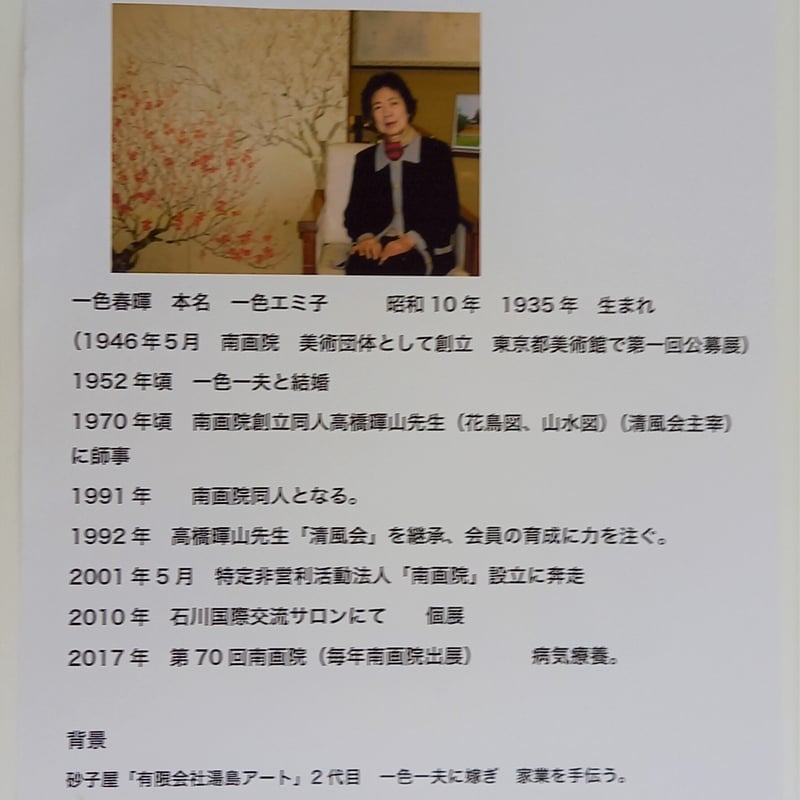 一色春暉　本名　一色エミ子　　昭和10年　1935年　生まれ
（1946年5月　南画院　美術団体として創立　東京都美術館で第一回公募展）
1952年頃　一色一夫と結婚
1970年頃　南画院創立同人高橋暉山先生（花鳥図、山水図）（清風会主宰）
に師事
1991年　　南画院同人となる。
1992年　高橋暉山先生「清風会」を継承、会員の育成に力を注ぐ。
2001年5月　特定非営利活動法人「南画院」設立に奔走
2010年　石川国際交流サロンにて　　個展
2017年　第70回南画院（毎年南画院出展）　　病気療養。
背景
砂子屋「有限会社湯島アート」2代目　一色一夫に嫁ぎ　家業を手伝う。